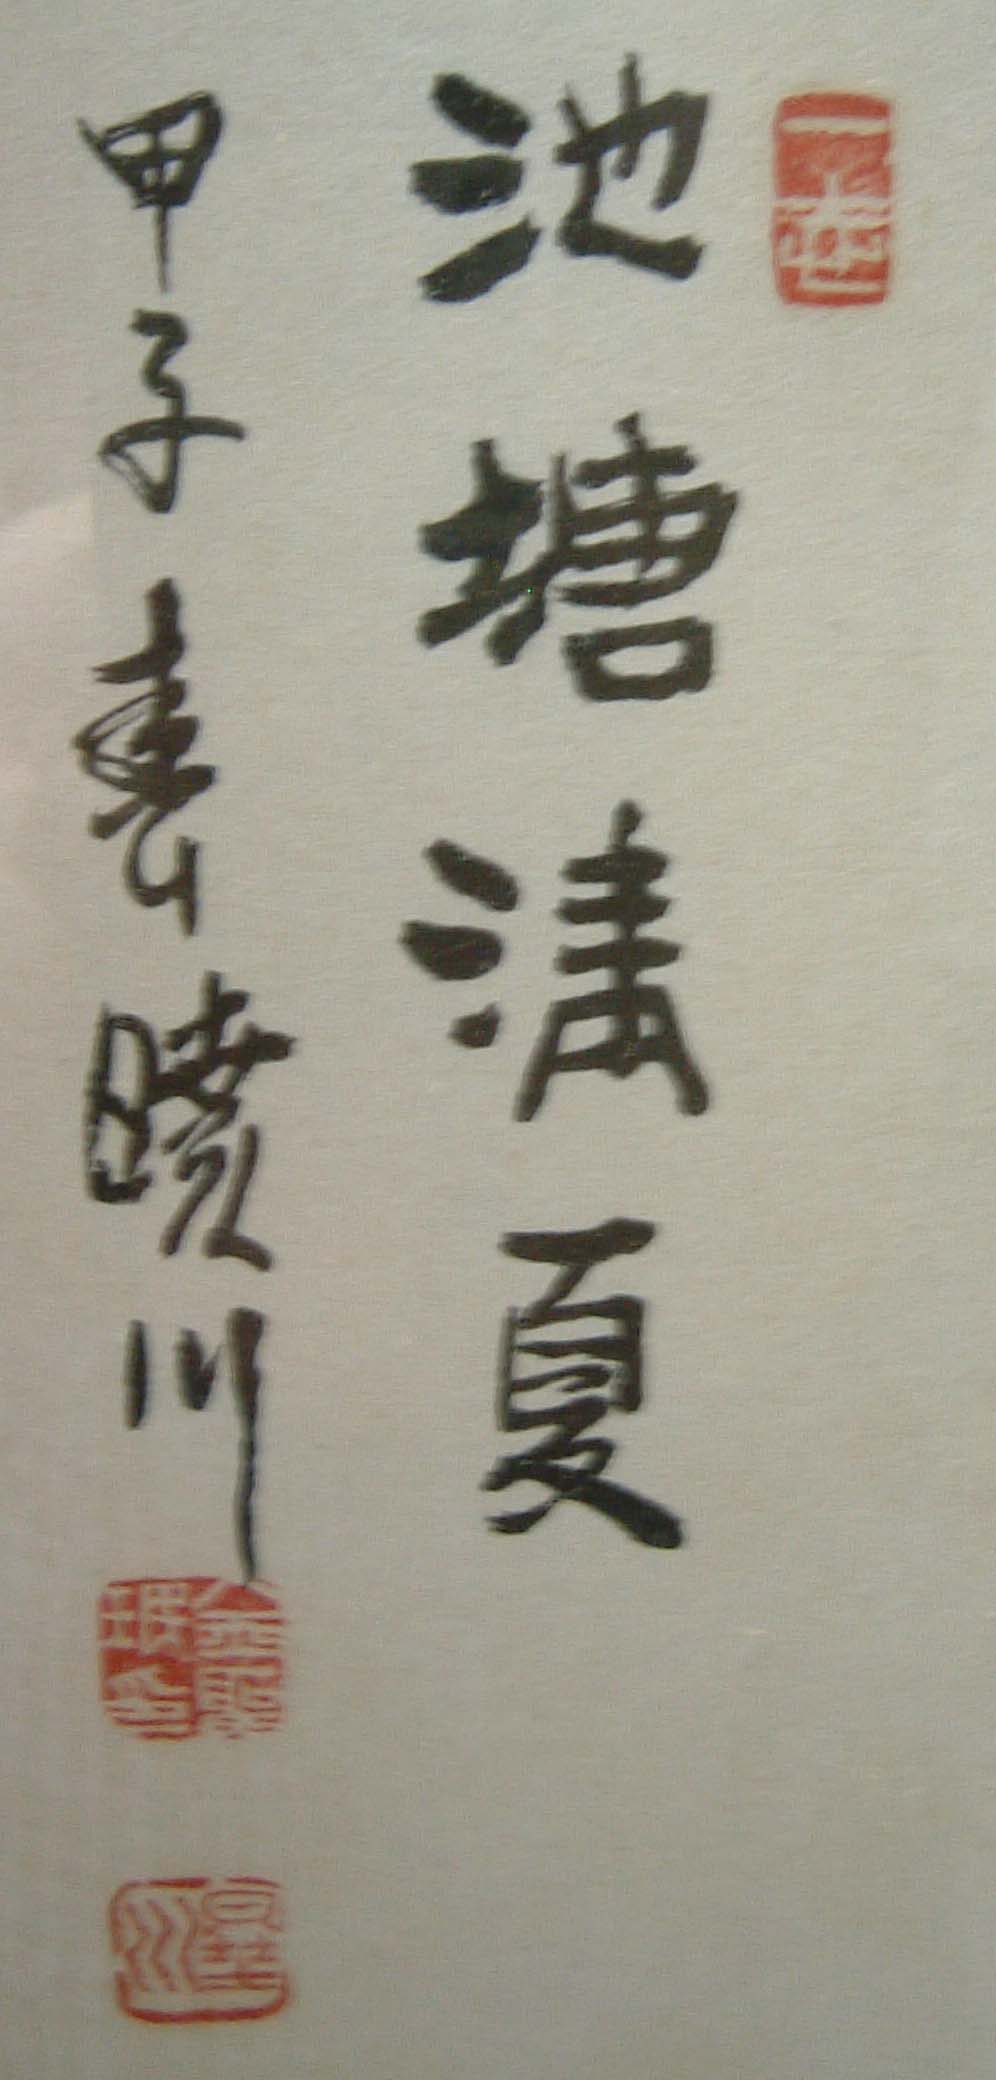 池塘清夏
甲子春曉川